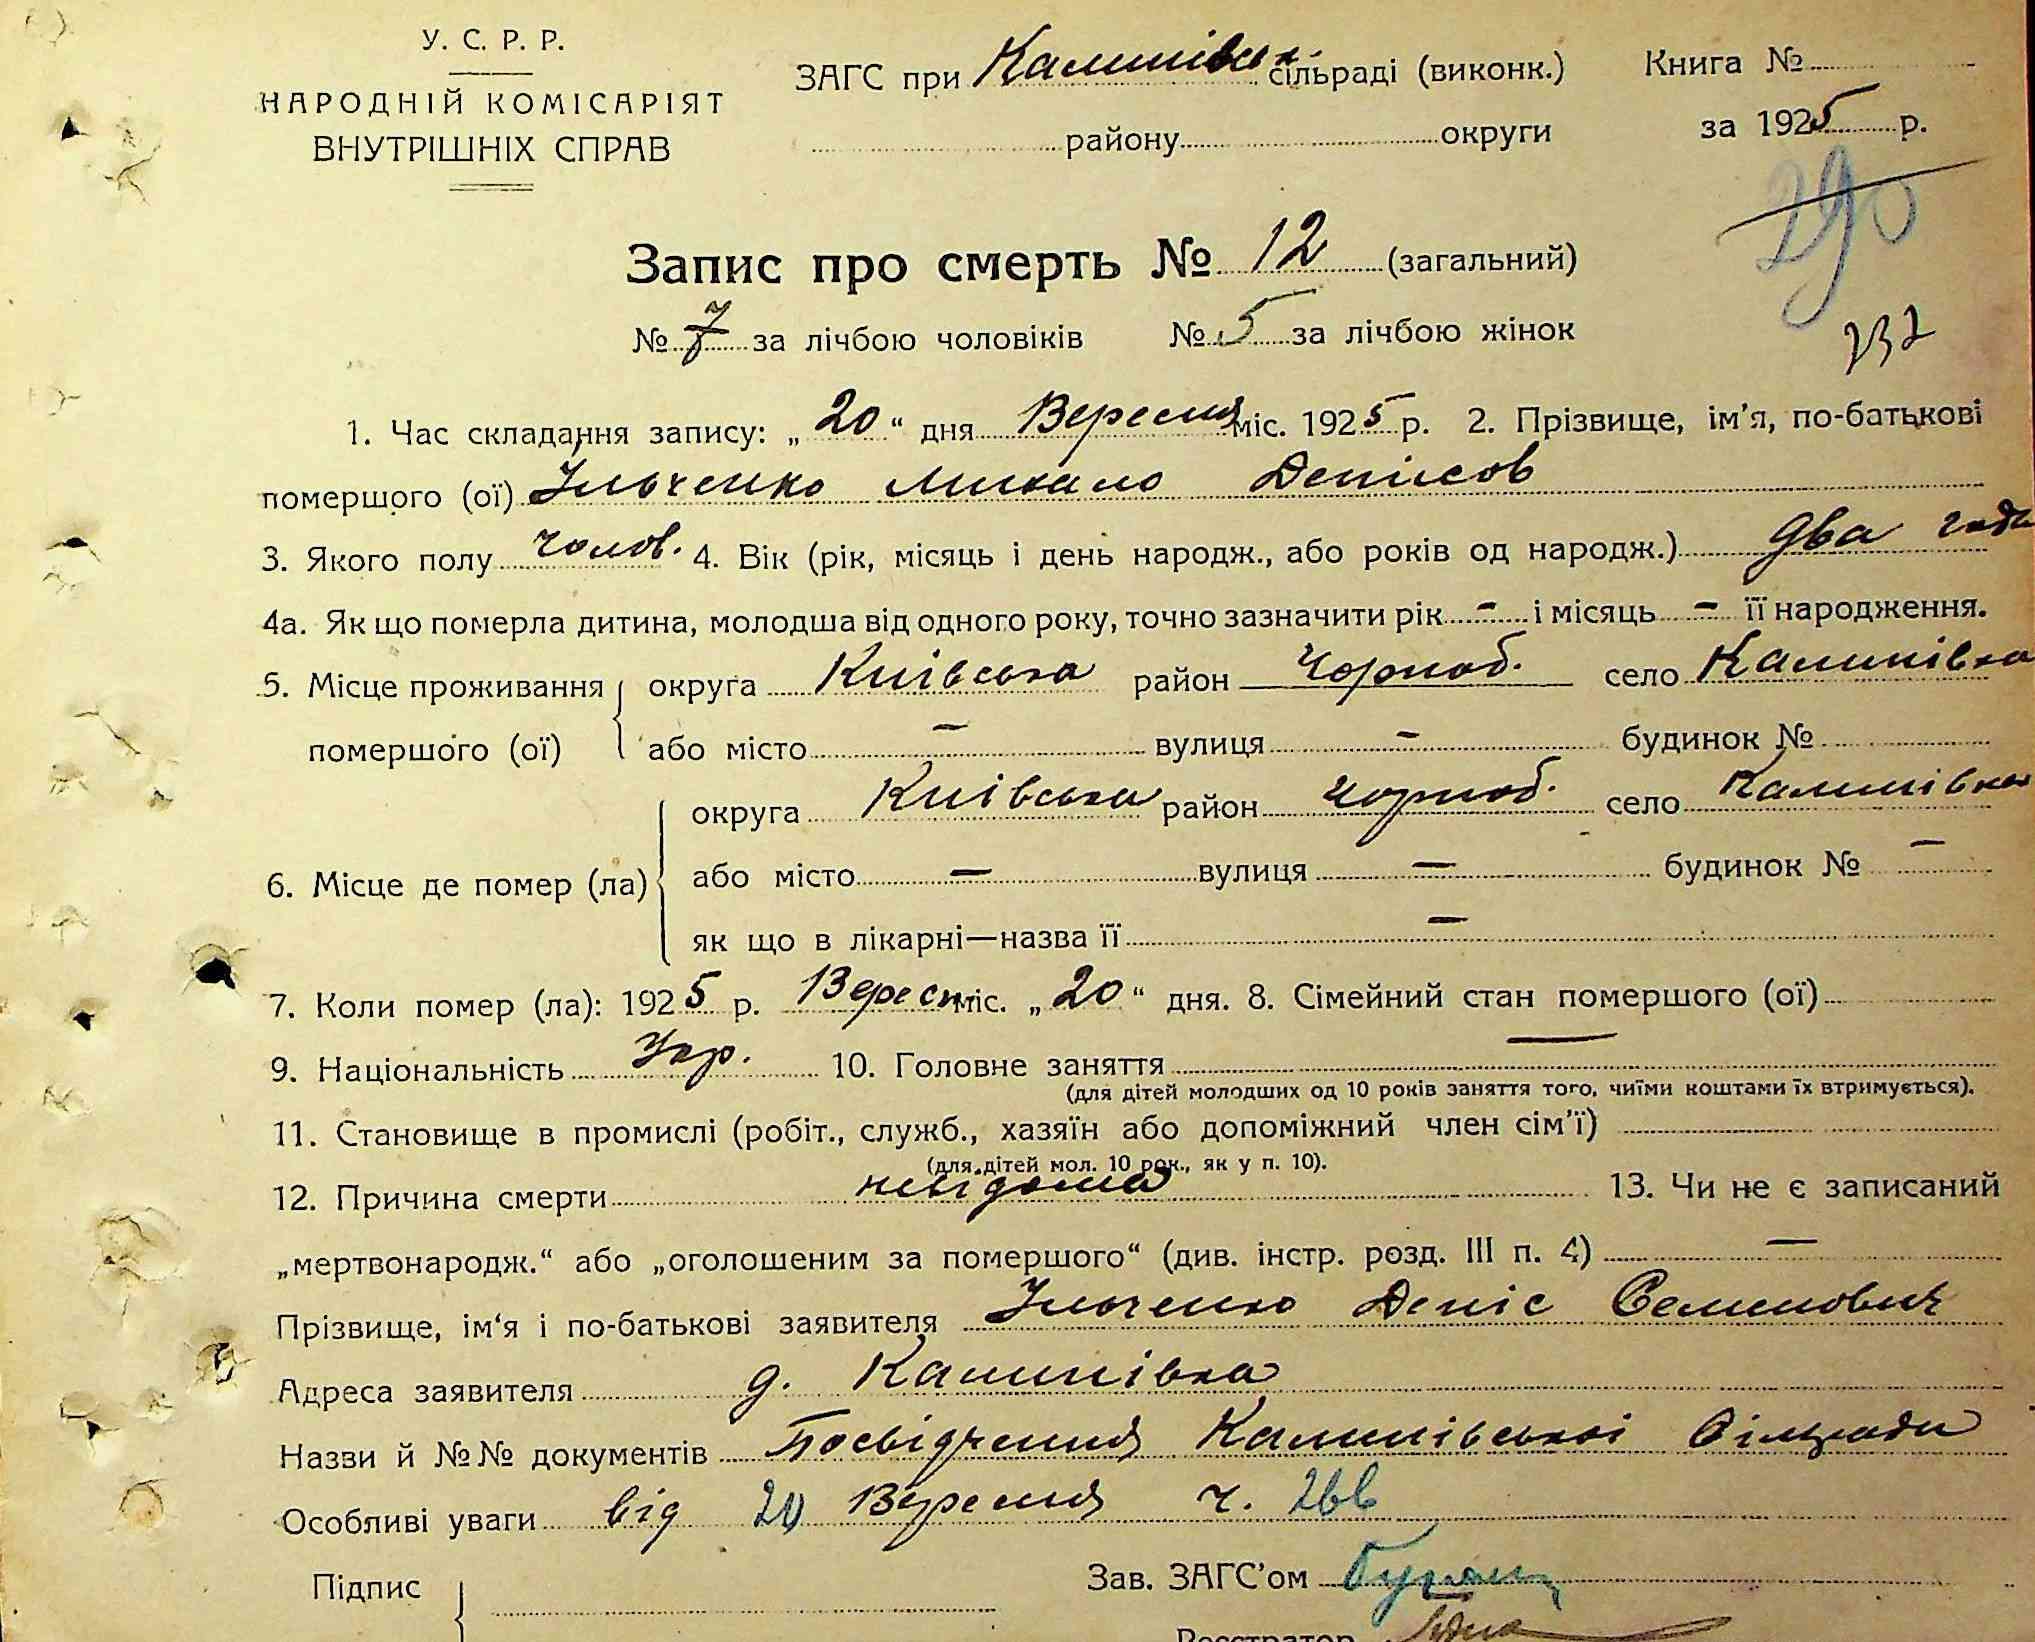 У. С. Р. Р.
НАРОДНІЙ КОМІСАРІЯТ
ВНУТРІШНІХ СПРАВ
ЗАГС при Калинівск. сільраді (виконк.)
Книга №
району округи
за 1925 р.
290
232
Запис про смерть № 12 (загальний)
№ 7 за лічбою чоловіків № 5 за лічбою жінок
1. Час складання запису: „20“ дня Вересня міс. 1925 р. 2. Прізвище, ім'я, по-батькові
помершого (ої) Ільченко Михайло Денісов
3. Якого полу чолов. 4. Вік (рік, місяць і день народж., або років од народж.) два года
4а. Як що померла дитина, молодша від одного року, точно зазначити рік – і місяць – її народження.
5. Місце проживання помершого (ої) округа Київська район Чорноб. село Калинівка
або місто – вулиця – будинок №
6. Місце де помер (ла) округа Київська район Чорноб. село Калинівка
або місто – вулиця – будинок № –
як що в лікарні—назва її –
7. Коли помер (ла): 1925 р. Вересн міс. „20“ дня. 8. Сімейний стан помершого (ої) —
9. Національність Укр. 10. Головне заняття
(для дітей молодших од 10 років заняття того, чиїми коштами їх втримується).
11. Становище в промислі (робіт., служб., хазяїн або допоміжний член сім'ї)
(для дітей мол. 10 рок., як у п. 10).
12. Причина смерти невідома 13. Чи не є записаний
„мертвонародж.“ або „оголошеним за помершого“ (див. інстр. розд. III п. 4) –
Прізвище, ім'я і по-батькові заявителя Ільченко Деніс Семенович
Адреса заявителя д. Калинівка
Назви й №№ документів Посвідчення Калинівської Сільради
Особливі уваги від 20 Вересня ч. 266
Підпис
Зав. ЗАГС'ом
Реєстратор